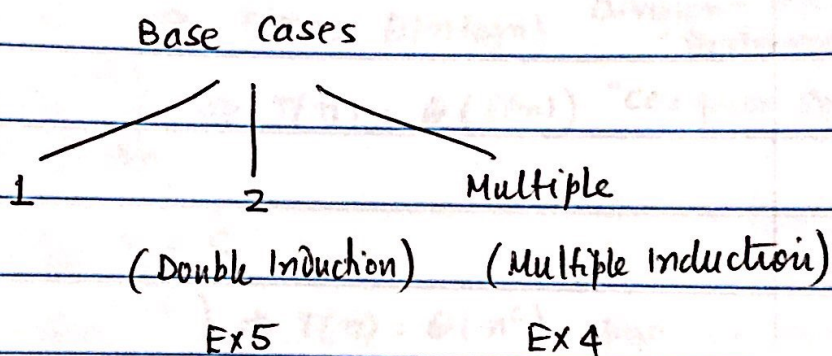 Base Cases
1 2 Multiple
(Double Induction) (Multiple Induction)
Ex5 Ex 4